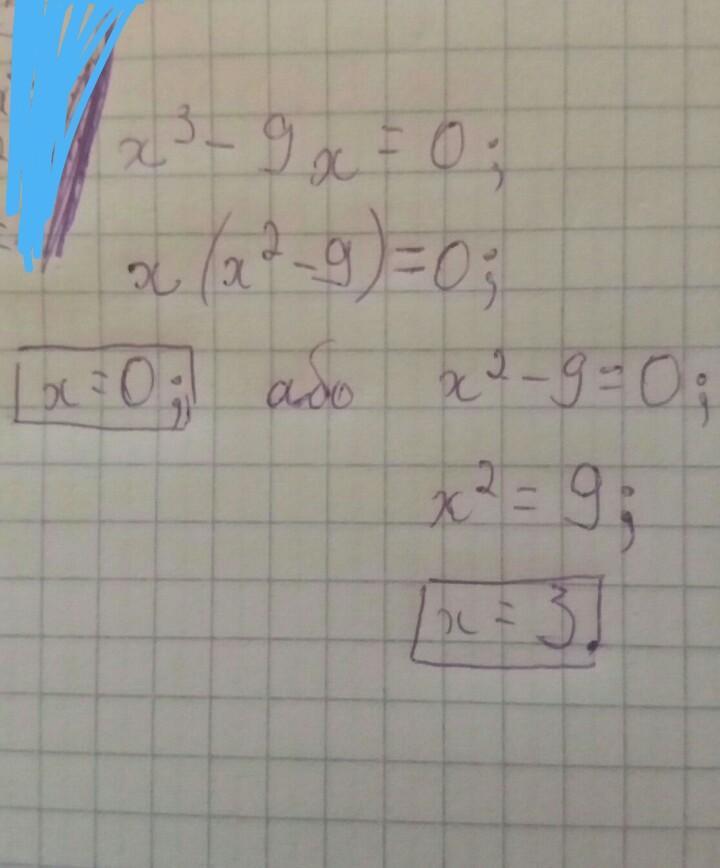 x³ - 9x = 0;
x(x² - 9) = 0;
x = 0; або x² - 9 = 0;
x² = 9;
x = 3.